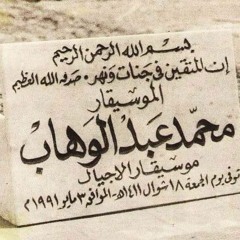 بسم الله الرحمن الرحيم
إن المتقين في جنات ونهر . صدق الله العظيم
الموسيقار
محمد عبد الوهاب
موسيقار الأجيال
توفى يوم الجمعة ١٨ شوال ١٤١١ هـ - الموافق ٣ مايو ١٩٩١ م